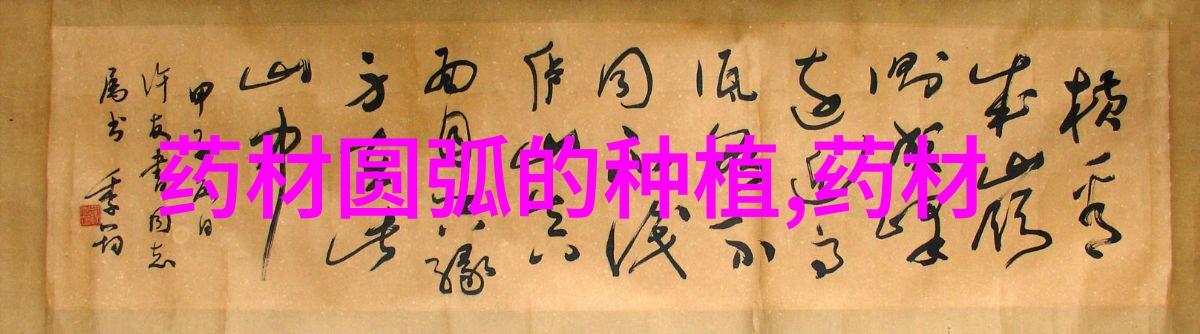 药材圆弧的种植,药材
横看
成岭
侧成峰
远近高
低不
同不识
庐山真
面目只缘
身在此
山中
甲子月日
许友书同志
属书